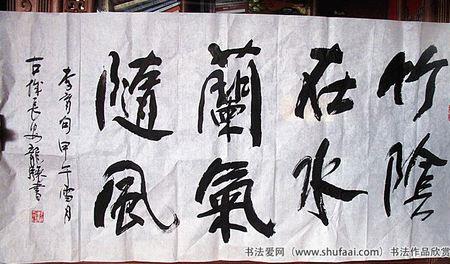 竹陰
在水
蘭氣
隨風
句甲午雪月
古城長安龍書
书法爱网（www.shufaai.com）书法作品欣赏